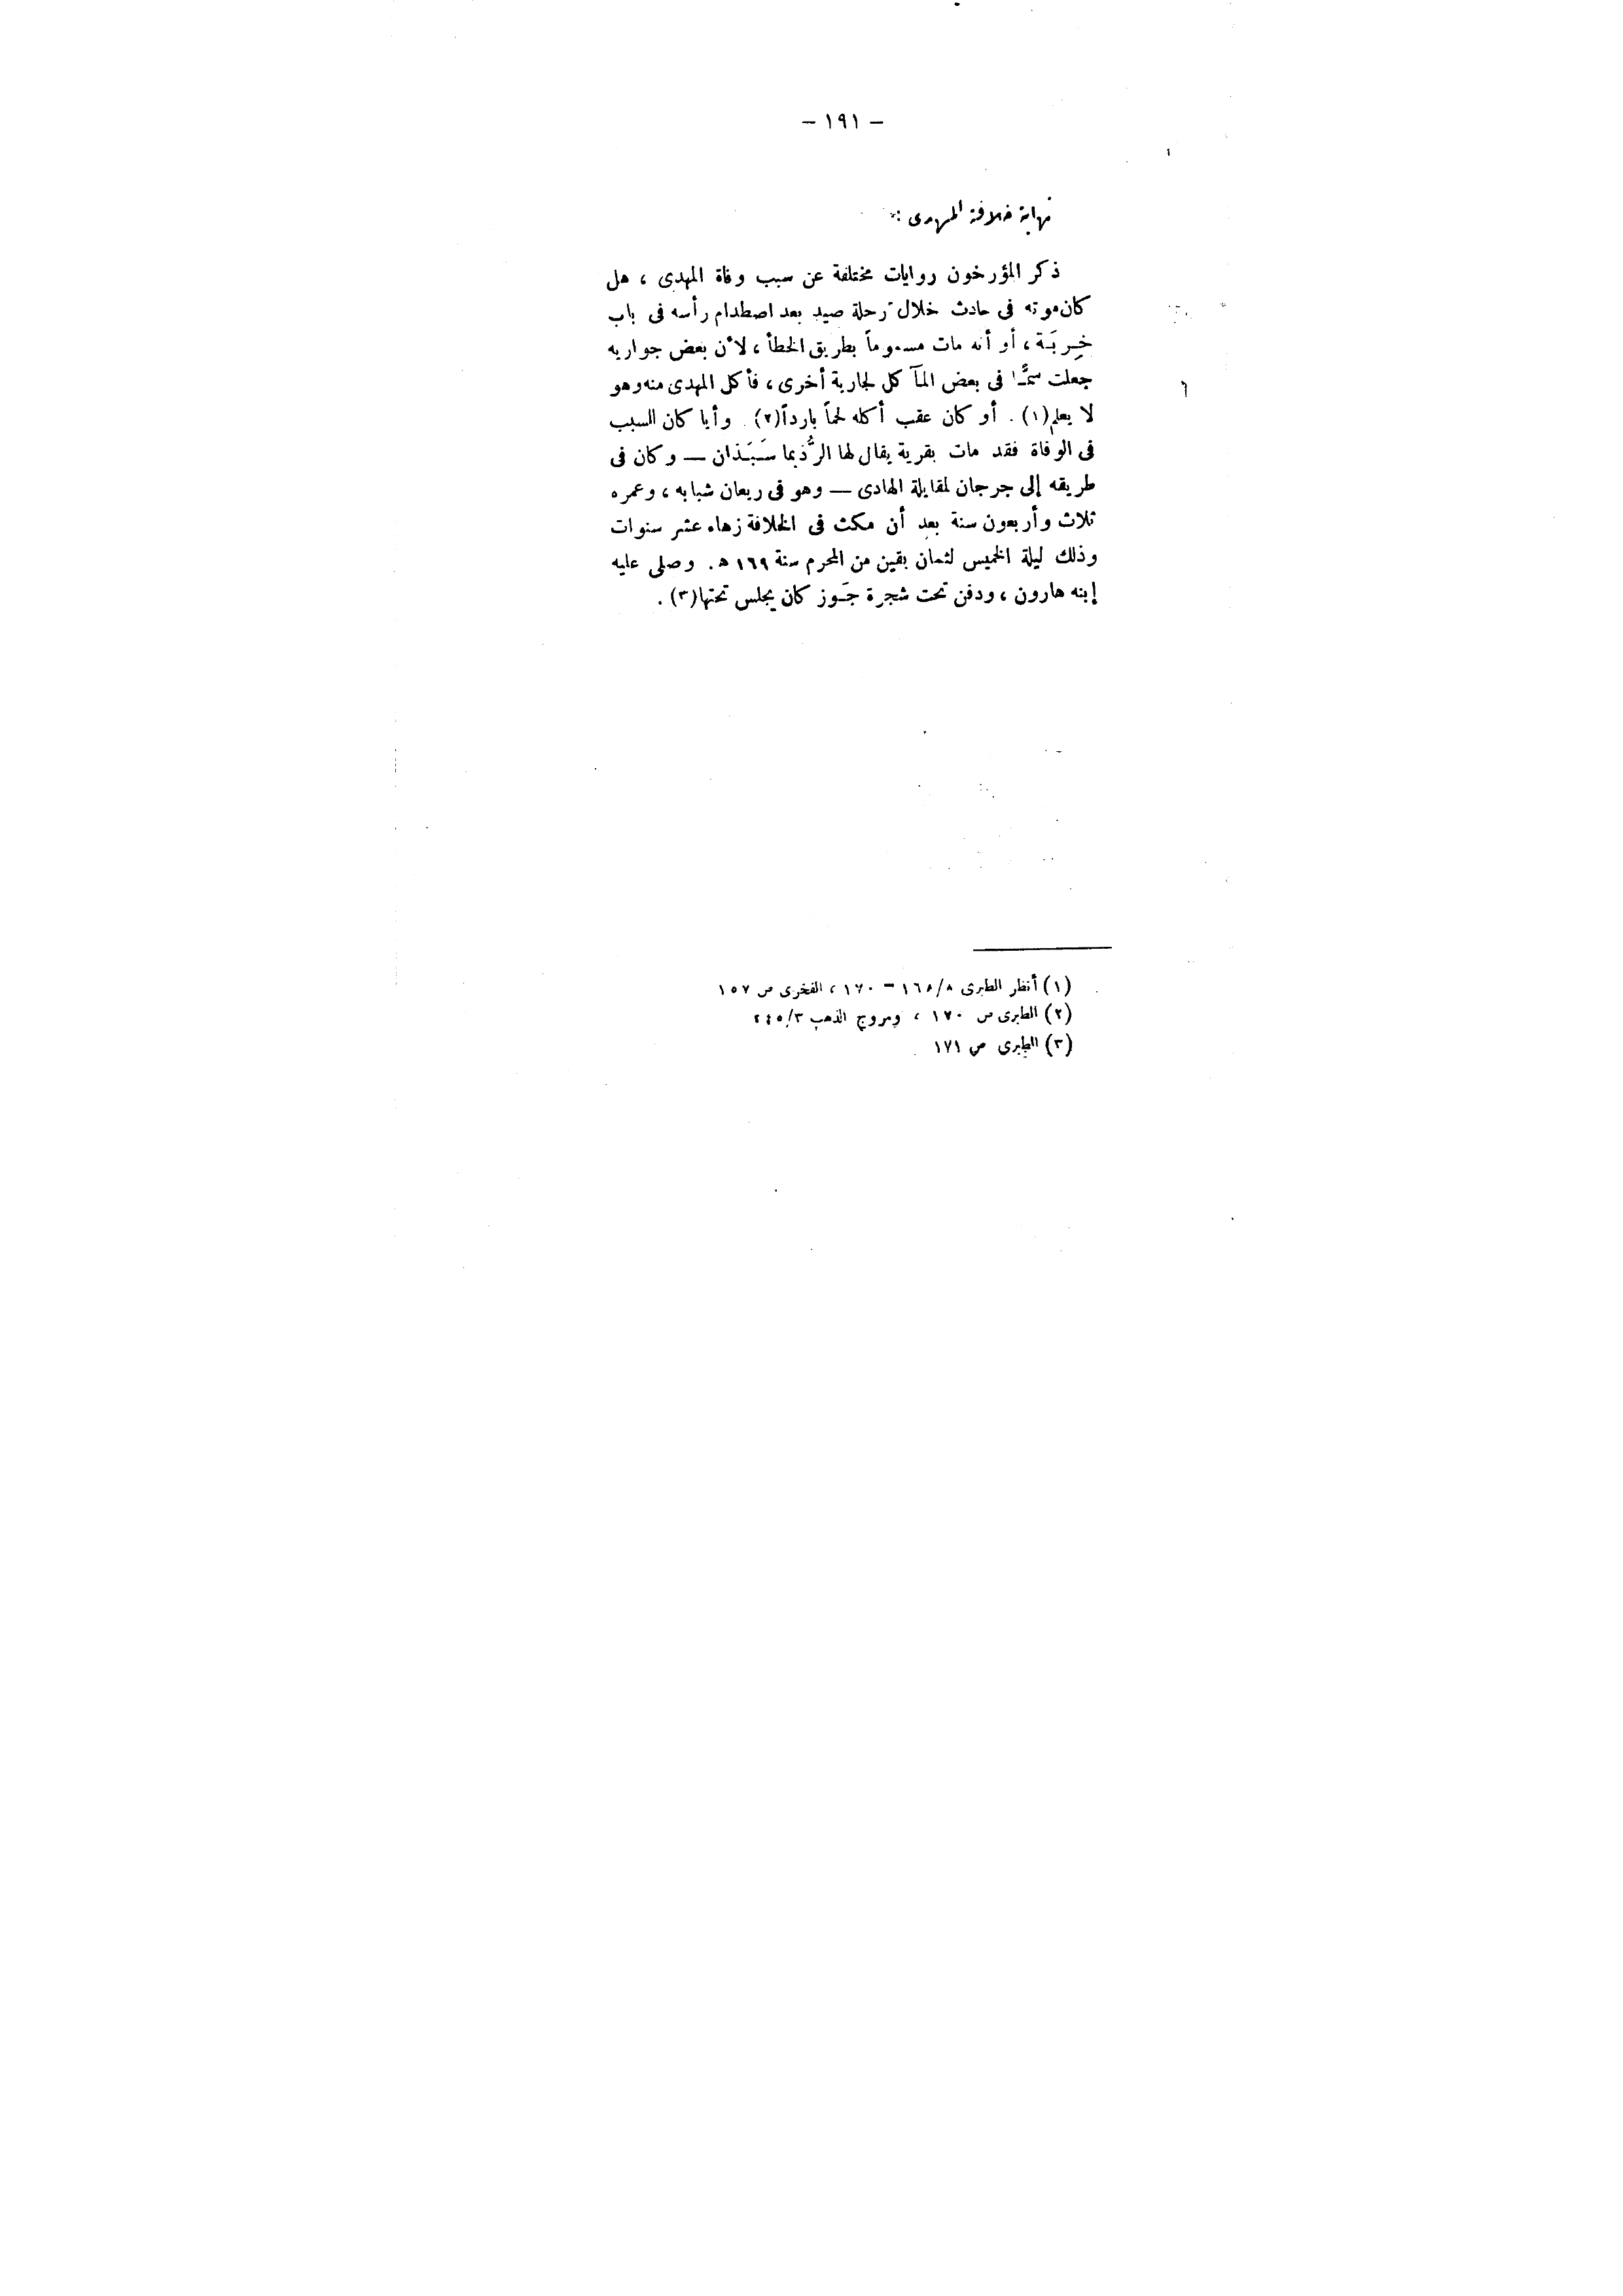 — ١٩١ —
نهاية خلافة المهدى :
ذكر المؤرخون روايات مختلفة عن سبب وفاة المهدى ، هل
كان موته فى حادث خلال رحلة صيد بعد اصطدام رأسه فى باب
خِربَة ، أو أنه مات مسموماً بطريق الخطأ ، لأن بعض جواريه
جعلت سمًّا فى بعض المآكل لجارية أخرى ، فأكل المهدى منه وهو
لا يعلم(١) . أو كان عقب أكله لحماً بارداً(٢) . وأيا كان السبب
فى الوفاة فقد مات بقرية يقال لها الرُّذ بما سَبَذان — وكان فى
طريقه إلى جرجان لمقابلة الهادى — وهو فى ريعان شبابه ، وعمره
ثلاث وأربعون سنة بعد أن مكث فى الخلافة زهاء عشر سنوات
وذلك ليلة الخميس لثمان بقين من المحرم سنة ١٦٩ هـ . وصلى عليه
إبنه هارون ، ودفن تحت شجرة جَوز كان يجلس تحتها(٣) .
(١) أنظر الطبرى ٨/١٦٨ – ١٧٠ ، الفخرى ص ١٥٧
(٢) الطبرى ص ١٧٠ ، ومروج الذهب ٣/٢٤٥
(٣) الطبرى ص ١٧١